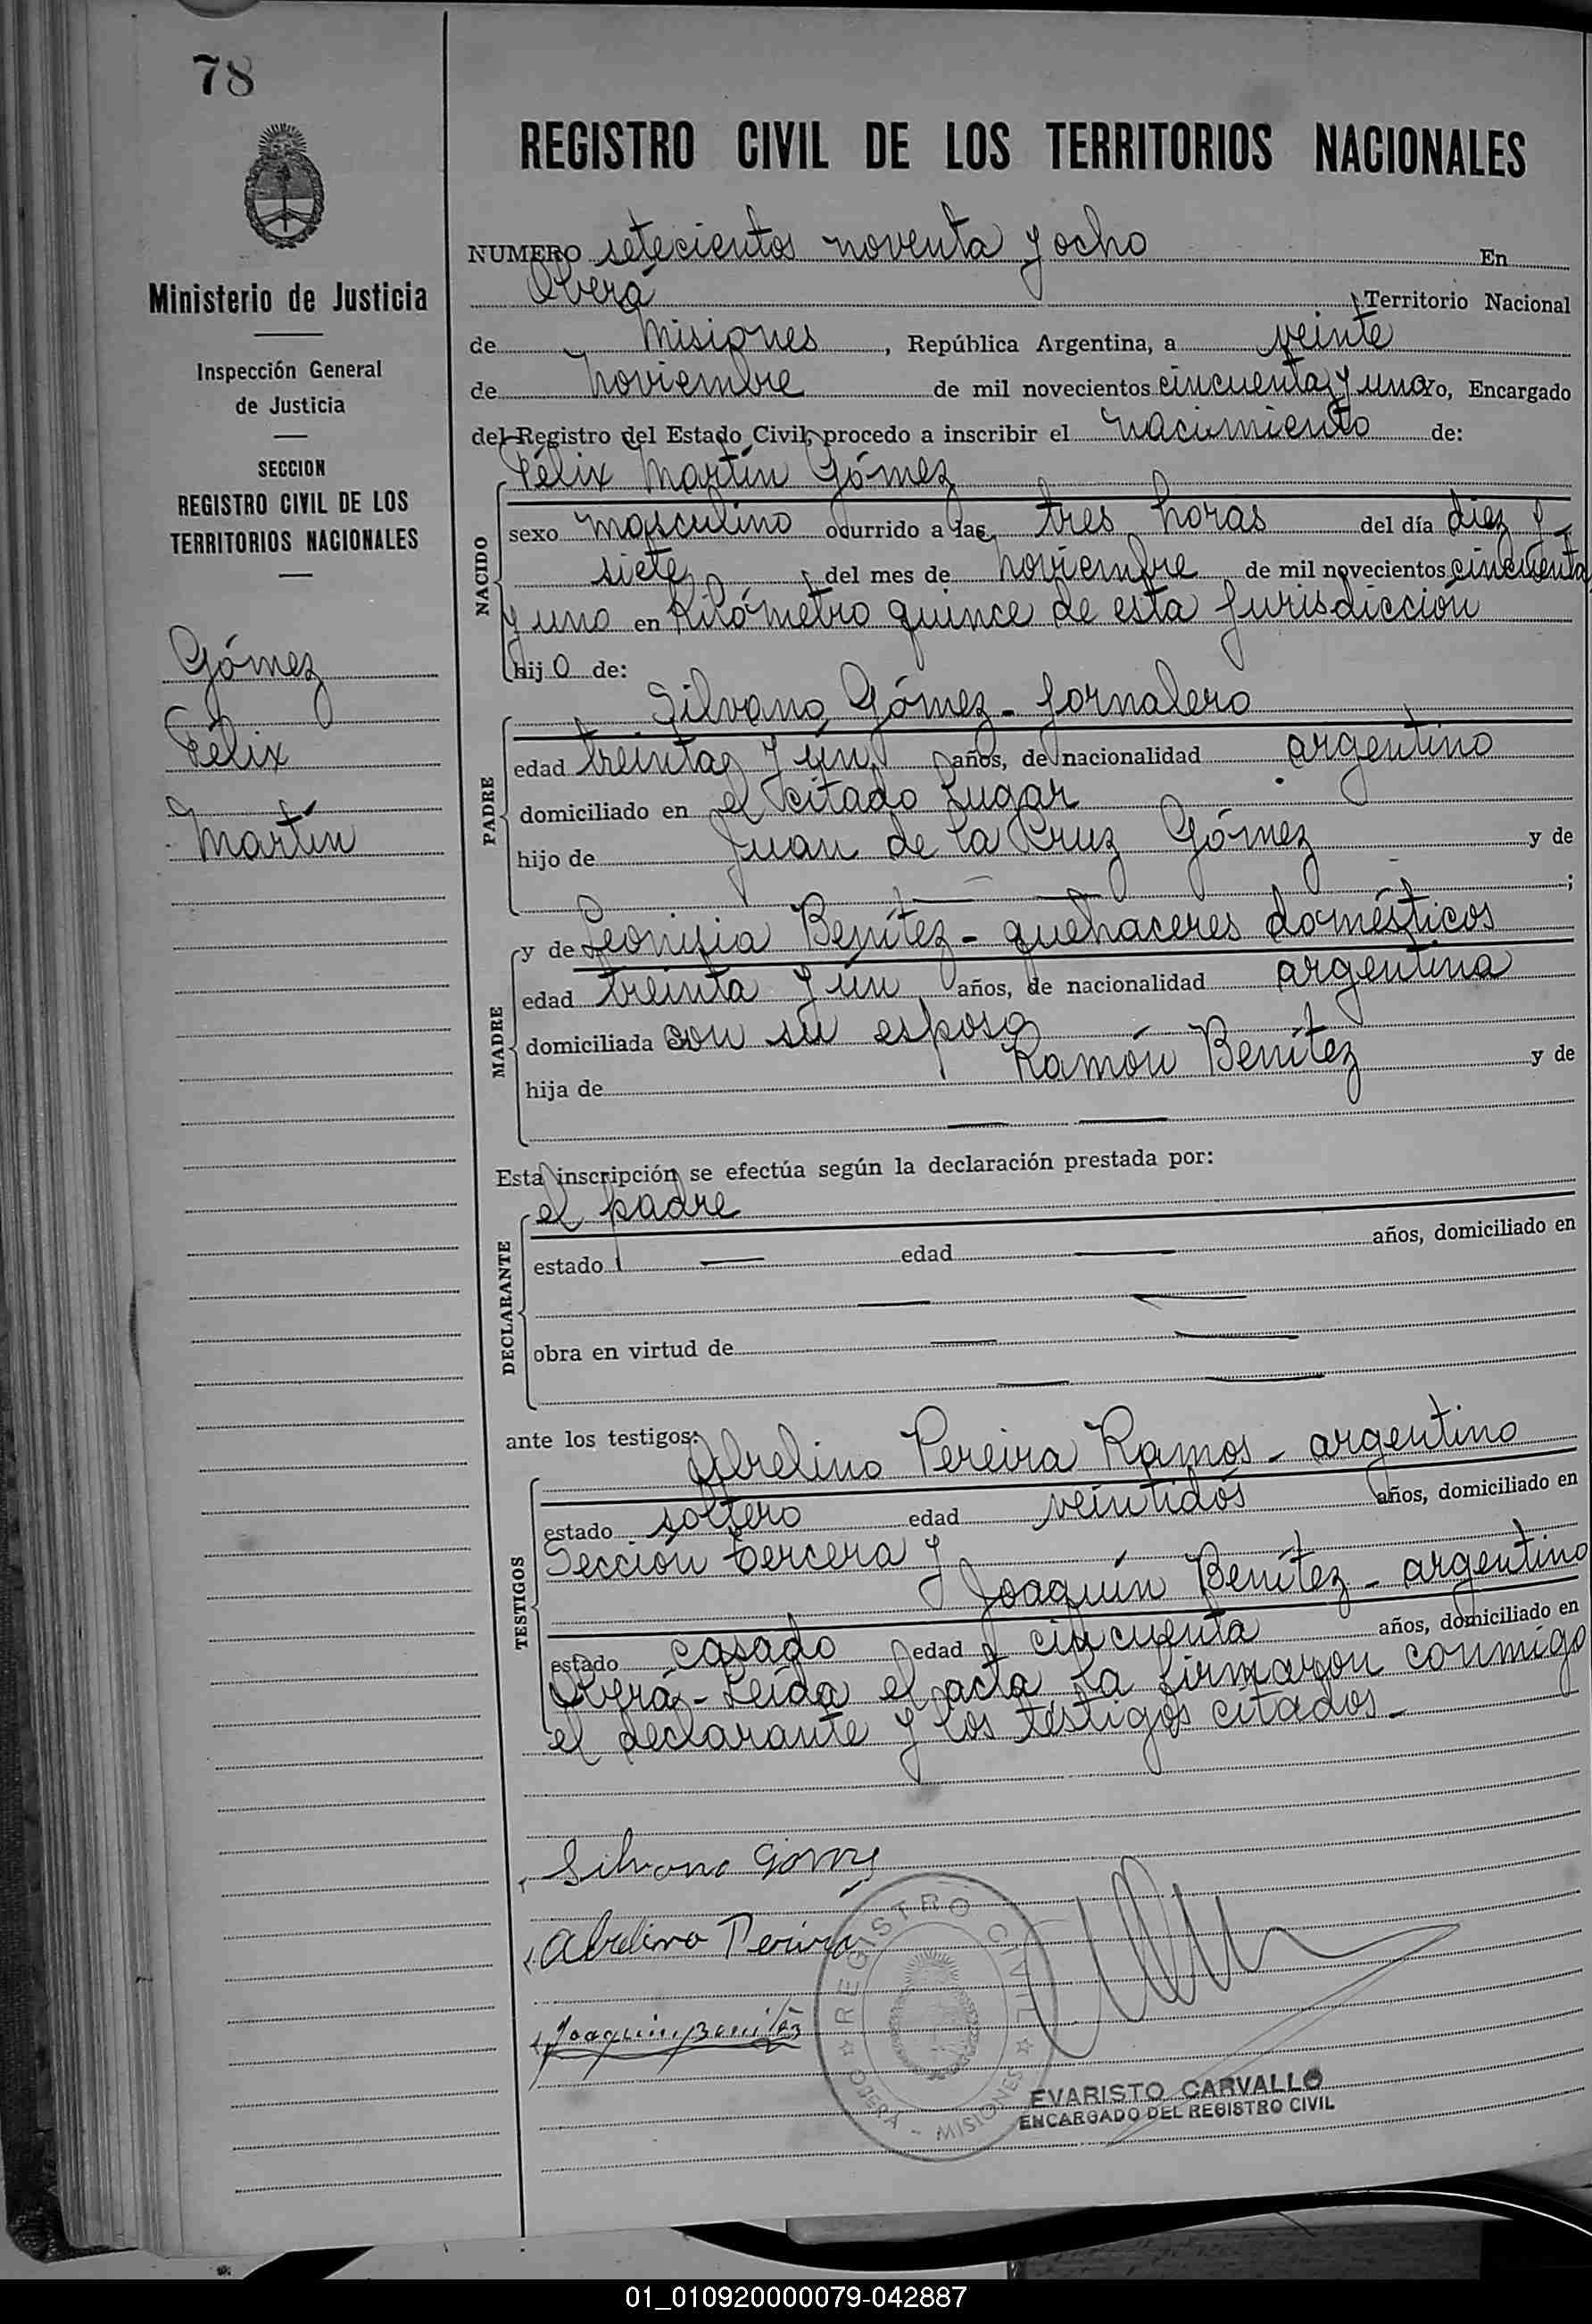 78
REGISTRO CIVIL DE LOS TERRITORIOS NACIONALES
Ministerio de Justicia
Inspección General
de Justicia
SECCION
REGISTRO CIVIL DE LOS
TERRITORIOS NACIONALES
Gómez
Félix
Martín
NUMERO setecientos noventa y ocho En
Oberá Territorio Nacional
de Misiones, República Argentina, a veinte
de Noviembre de mil novecientos cincuenta y uno yo, Encargado
del Registro del Estado Civil, procedo a inscribir el nacimiento de:
NACIDO
Félix Martín Gómez
sexo masculino ocurrido a las tres horas del día diez y
siete del mes de Noviembre de mil novecientos cincuenta
y uno en Kilómetro quince de esta Jurisdicción
hij o de:
PADRE
Silvano Gómez - Jornalero
edad treinta y ún años, de nacionalidad argentino
domiciliado en el citado lugar
hijo de Juan de la Cruz Gómez y de
;
MADRE
y de Leonisia Benítez - quehaceres domésticos
edad treinta y ún años, de nacionalidad argentina
domiciliada con su esposo
hija de Ramón Benítez y de
Esta inscripción se efectúa según la declaración prestada por:
DECLARANTE
el padre
estado edad años, domiciliado en
obra en virtud de
ante los testigos:
TESTIGOS
Abrelino Pereira Ramos - argentino
estado soltero edad veintidós años, domiciliado en
Sección tercera y
Joaquín Benítez - argentino
estado casado edad cincuenta años, domiciliado en
Oberá - Leída el acta la firmaron conmigo
el declarante y los testigos citados.-
Silvano Gómez
Abrelino Pereira
Joaquin Benítez
REGISTRO CIVIL
OBERA - MISIONES
EVARISTO CARVALLO
ENCARGADO DEL REGISTRO CIVIL
01_010920000079-042887